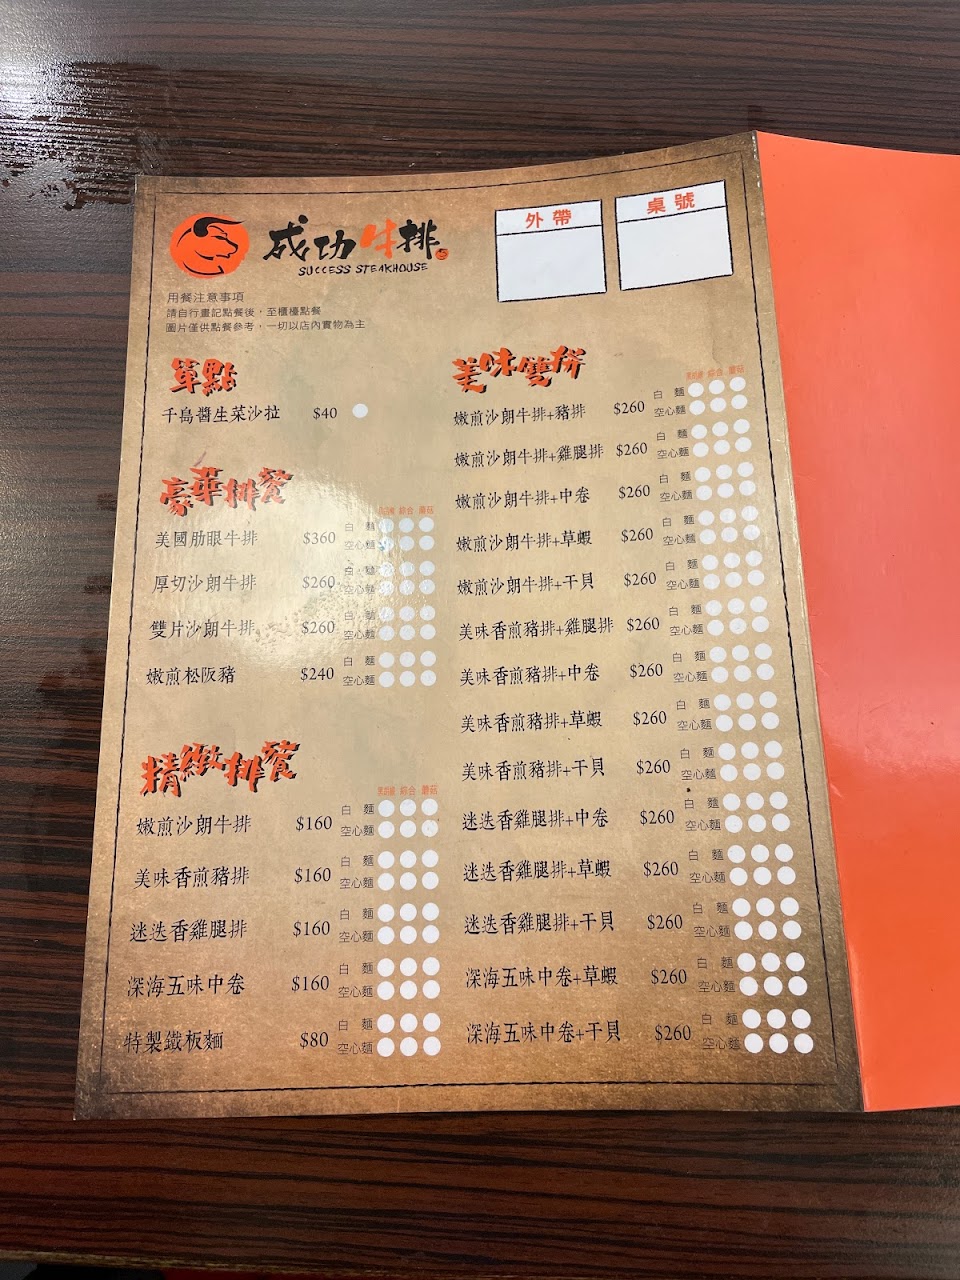 成功牛排
SUCCESS STEAKHOUSE
外帶
桌號
用餐注意事項
請自行畫記點餐後，至櫃檯點餐
圖片僅供點餐參考，一切以店內實物為主
單點
千島醬生菜沙拉 $40
豪華排餐
黑胡椒 綜合 蘑菇
美國肋眼牛排 $360 白麵 空心麵
厚切沙朗牛排 $260 白麵 空心麵
雙片沙朗牛排 $260 白麵 空心麵
嫩煎松阪豬 $240 白麵 空心麵
精緻排餐
黑胡椒 綜合 蘑菇
嫩煎沙朗牛排 $160 白麵 空心麵
美味香煎豬排 $160 白麵 空心麵
迷迭香雞腿排 $160 白麵 空心麵
深海五味中卷 $160 白麵 空心麵
特製鐵板麵 $80 白麵 空心麵
美味雙拼
黑胡椒 綜合 蘑菇
嫩煎沙朗牛排+豬排 $260 白麵 空心麵
嫩煎沙朗牛排+雞腿排 $260 白麵 空心麵
嫩煎沙朗牛排+中卷 $260 白麵 空心麵
嫩煎沙朗牛排+草蝦 $260 白麵 空心麵
嫩煎沙朗牛排+干貝 $260 白麵 空心麵
美味香煎豬排+雞腿排 $260 白麵 空心麵
美味香煎豬排+中卷 $260 白麵 空心麵
美味香煎豬排+草蝦 $260 白麵 空心麵
美味香煎豬排+干貝 $260 白麵 空心麵
迷迭香雞腿排+中卷 $260 白麵 空心麵
迷迭香雞腿排+草蝦 $260 白麵 空心麵
迷迭香雞腿排+干貝 $260 白麵 空心麵
深海五味中卷+草蝦 $260 白麵 空心麵
深海五味中卷+干貝 $260 白麵 空心麵